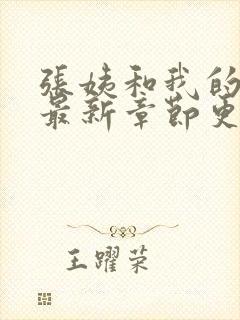 張姨和我的
最新章節更
王躍榮